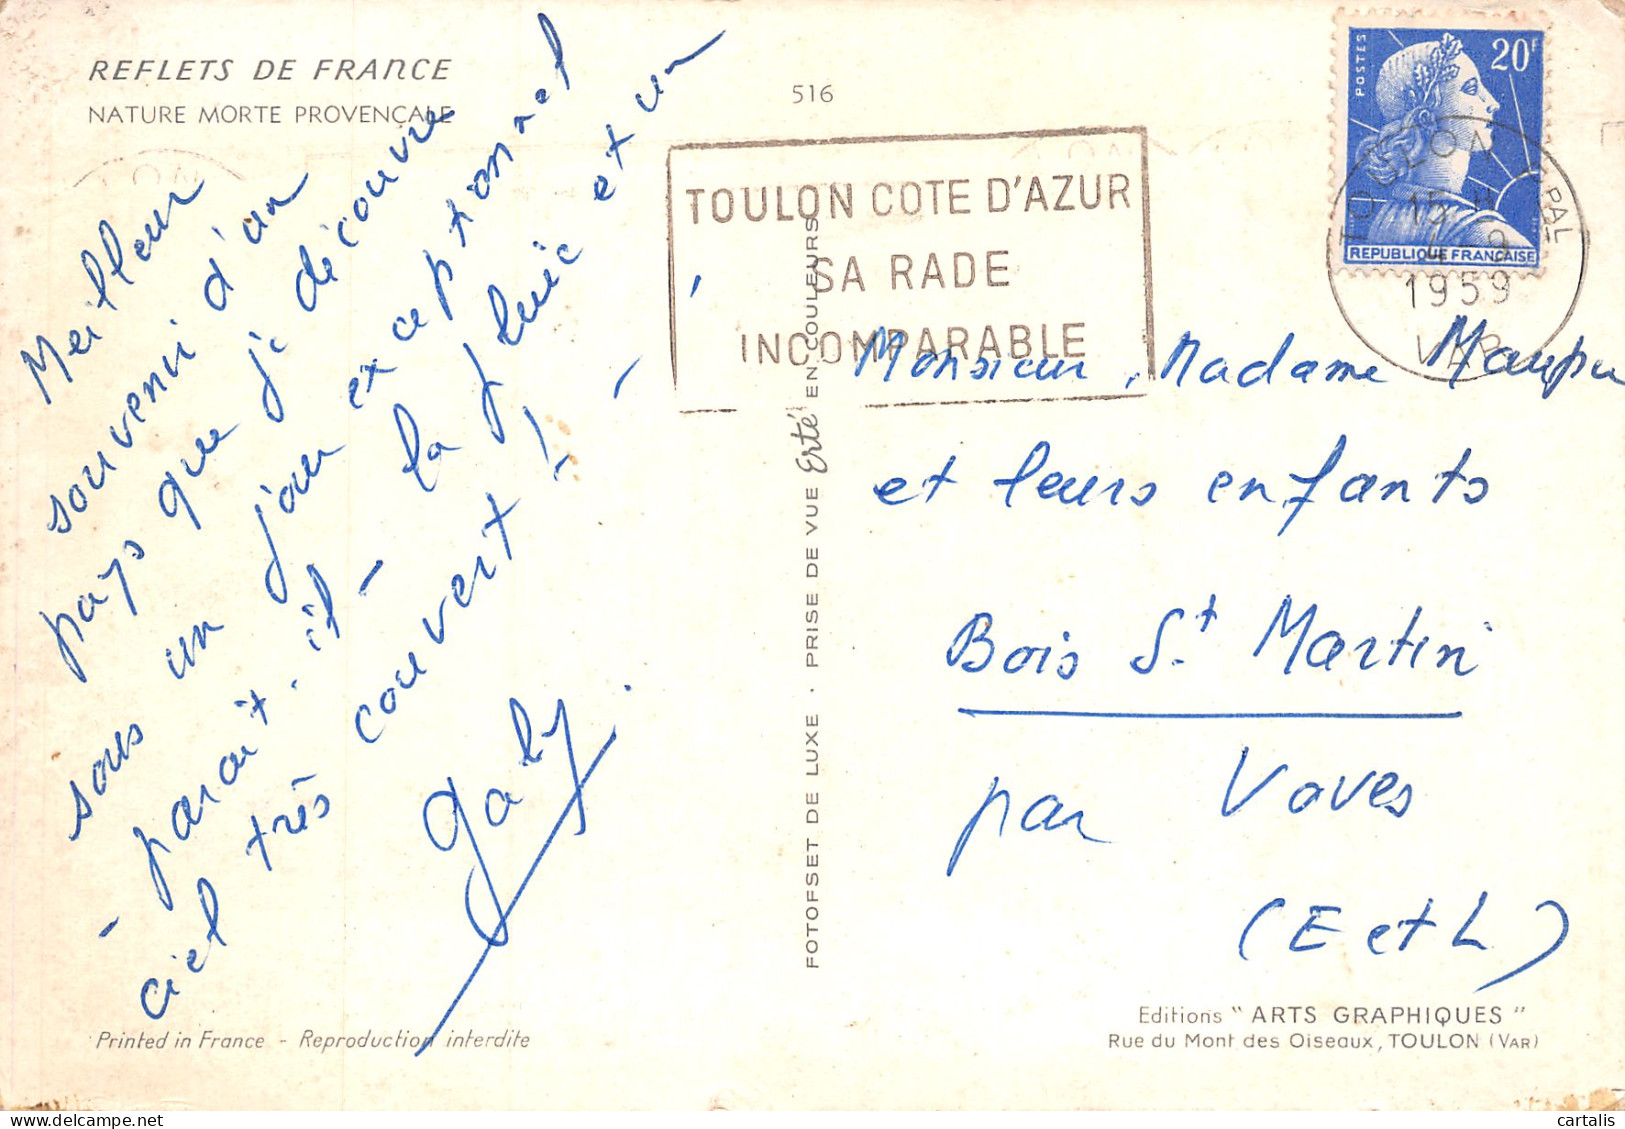 REFLETS DE FRANCE
NATURE MORTE PROVENÇALE
516
Meilleur
souvenir d'un
pays que je découvre
sous un jour exceptionnel
- paraît-il - la pluie et un
ciel très couvert ! -
Galy
TOULON COTE D'AZUR
SA RADE
INCOMPARABLE
POSTES
20F
REPUBLIQUE FRANÇAISE
TOULON PAL
15 H
4-9
1959
VAR
FOTOFSET DE LUXE · PRISE DE VUE Erté EN COULEURS
Monsieur, Madame Maupu
et leurs enfants
Bois St Martin
par Voves
(E et L)
Printed in France - Reproduction interdite
Editions "ARTS GRAPHIQUES"
Rue du Mont des Oiseaux, TOULON (VAR)
cartalis